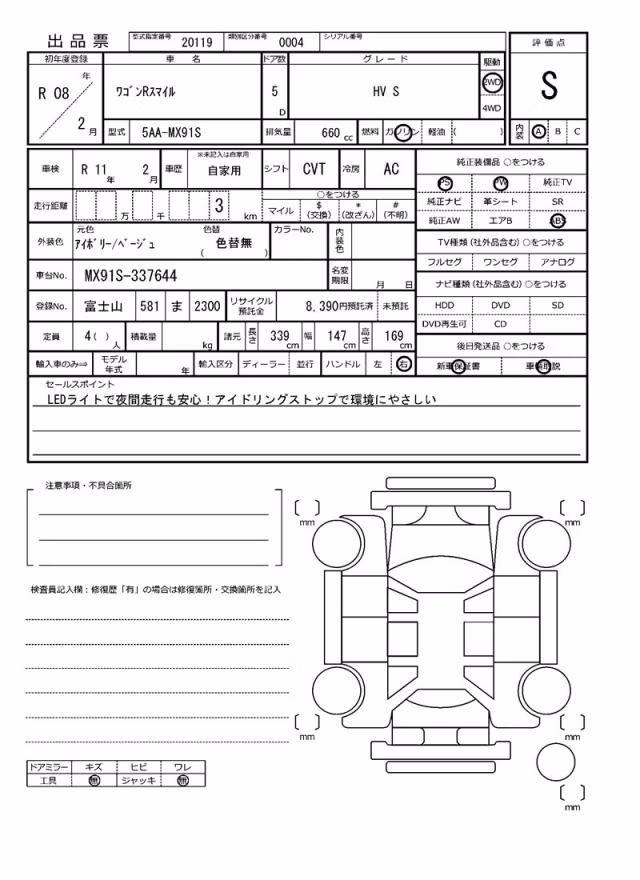 出品票 型式指定番号 20119 類別区分番号 0004 シリアル番号
評価点
S
初年度登録 車名 ドア数 グレード 駆動
R 08 年 2 月 ワゴンRスマイル 5 D HV S 2WD 4WD
型式 5AA-MX91S 排気量 660 cc 燃料 ガソリン 軽油 ( ) 内装 A B C
車検 R 11 年 2 月 車歴 ※未記入は自家用 自家用 シフト CVT 冷房 AC
走行距離 万 千 3 km ○をつける
マイル $ (交換) * (改ざん) # (不明)
外装色 元色 アイボリー/ベージュ 色替 ( 色替無 ) カラーNo. 内装色
車台No. MX91S-337644 名変期限 月 日
登録No. 富士山 581 ま 2300 リサイクル預託金 8,390円預託済 未預託
定員 4( ) 人 積載量 kg 諸元 長さ 339 cm 幅 147 cm 高さ 169 cm
輸入車のみ⇒ モデル年式 年 輸入区分 ディーラー 並行 ハンドル 左 右
純正装備品 ○をつける
PS PW 純正TV
純正ナビ 革シート SR
純正AW エアB ABS
TV種類 (社外品含む) ○をつける
フルセグ ワンセグ アナログ
ナビ種類 (社外品含む) ○をつける
HDD DVD SD
DVD再生可 CD
後日発送品 ○をつける
新車保証書 車輌取説
セールスポイント
LEDライトで夜間走行も安心!アイドリングストップで環境にやさしい
注意事項・不具合箇所
検査員記入欄:修復歴「有」の場合は修復箇所・交換箇所を記入
ドアミラー キズ ヒビ ワレ
工具 無 ジャッキ 無
[ ] mm
[ ] mm
[ ] mm
[ ] mm
[ ] mm